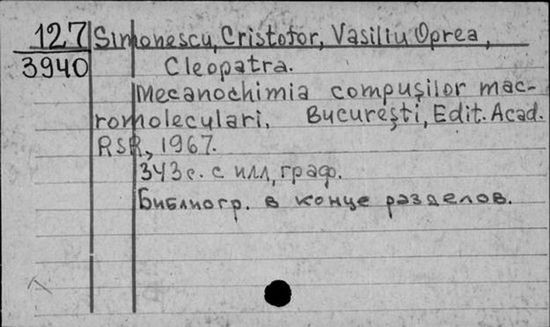 127 Simonescu, Cristofor, Vasiliu Oprea,
3940 Cleopatra.
Mecanochimia compuşilor mac-
romoleculari. Bucureşti, Edit. Acad.
RSR, 1967.
343 с. с илл, граф.
Библиогр. в конце разделов.